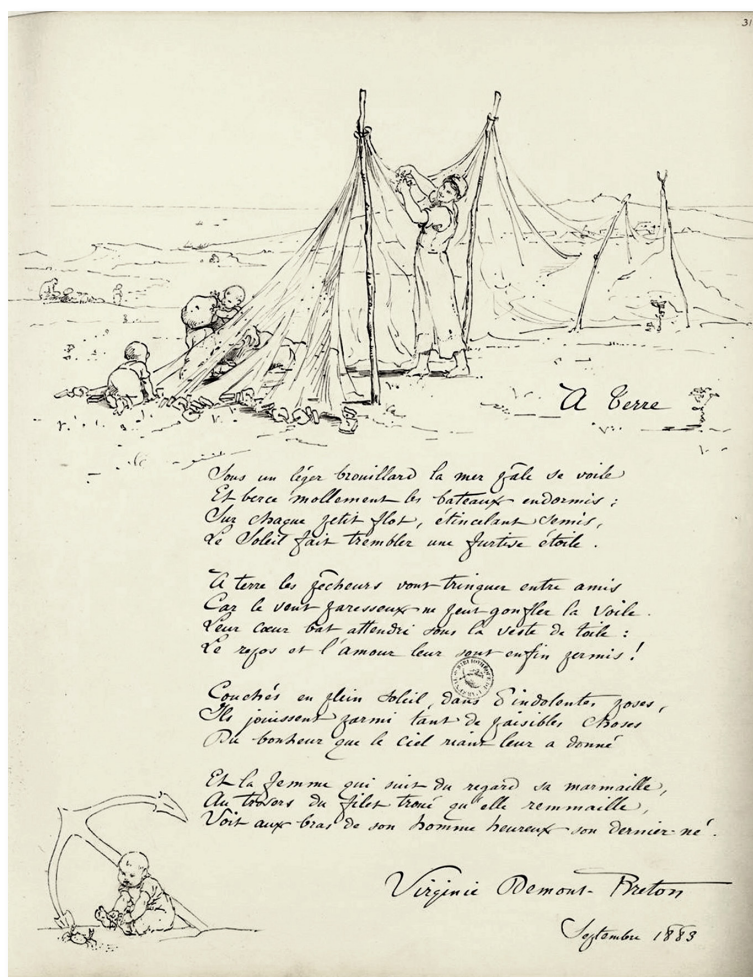 31
A Terre
Sous un léger brouillard la mer pâle se voile
Et berce mollement les bateaux endormis ;
Sur chaque petit flot, étincelant semis,
Le Soleil fait trembler une furtive étoile.
A terre les pêcheurs vont trinquer entre amis
Car le vent paresseux ne peut gonfler la voile.
Leur cœur bat attendri sous la veste de toile :
Le repos et l'amour leur sont enfin permis !
Couchés en plein soleil, dans d'indolentes poses,
Ils jouissent parmi tant de paisibles choses
Du bonheur que le ciel riant leur a donné
Et la femme qui suit du regard sa marmaille,
Au travers du filet troué qu'elle remmaille,
Voit aux bras de son homme heureux son dernier né.
Virginie Demont-Breton
Septembre 1883